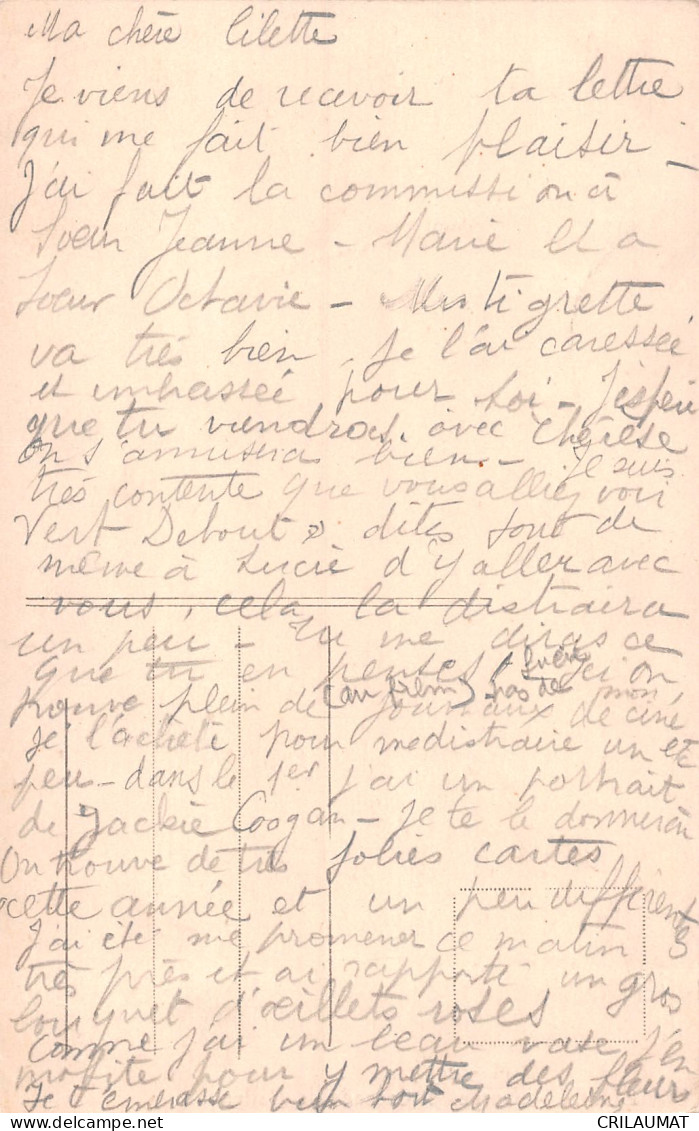 Ma chère Lilette
Je viens de recevoir ta lettre
qui me fait bien plaisir -
J'ai fait la commission à
Sœur Jeanne - Marie et a
Sœur Octavie - Mistigrette
va très bien, je l'ai caressée
et embrassée pour toi - J'espère
que tu viendras avec
On s'amusera bien - Je suis
très contente que vous alliez voir
Vert Debout, dites tout de
même à Lucie d'y aller avec
vous, cela la distraira
un peu - Tu me diras ce
que tu en penses, Ici on
trouve plein de journaux de ciné
Je l'achète pour me distraire un
peu - dans le 1er j'ai un portrait
de Jackie Coogan - je te le donnerai
On trouve de très jolies cartes
cette année et un peu différentes
J'ai été me promener ce matin
très près et ai rapporté un gros
bouquet d'œillets roses
Comme j'ai un beau vase j'en
profite pour y mettre des fleurs
Je t'embrasse bien fort Madeleine
CRILAUMAT